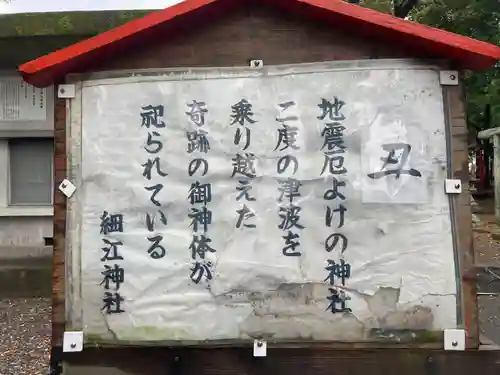 丑
地震厄よけの神社
二度の津波を
乗り越えた
奇跡の御神体が
祀られている
細江神社